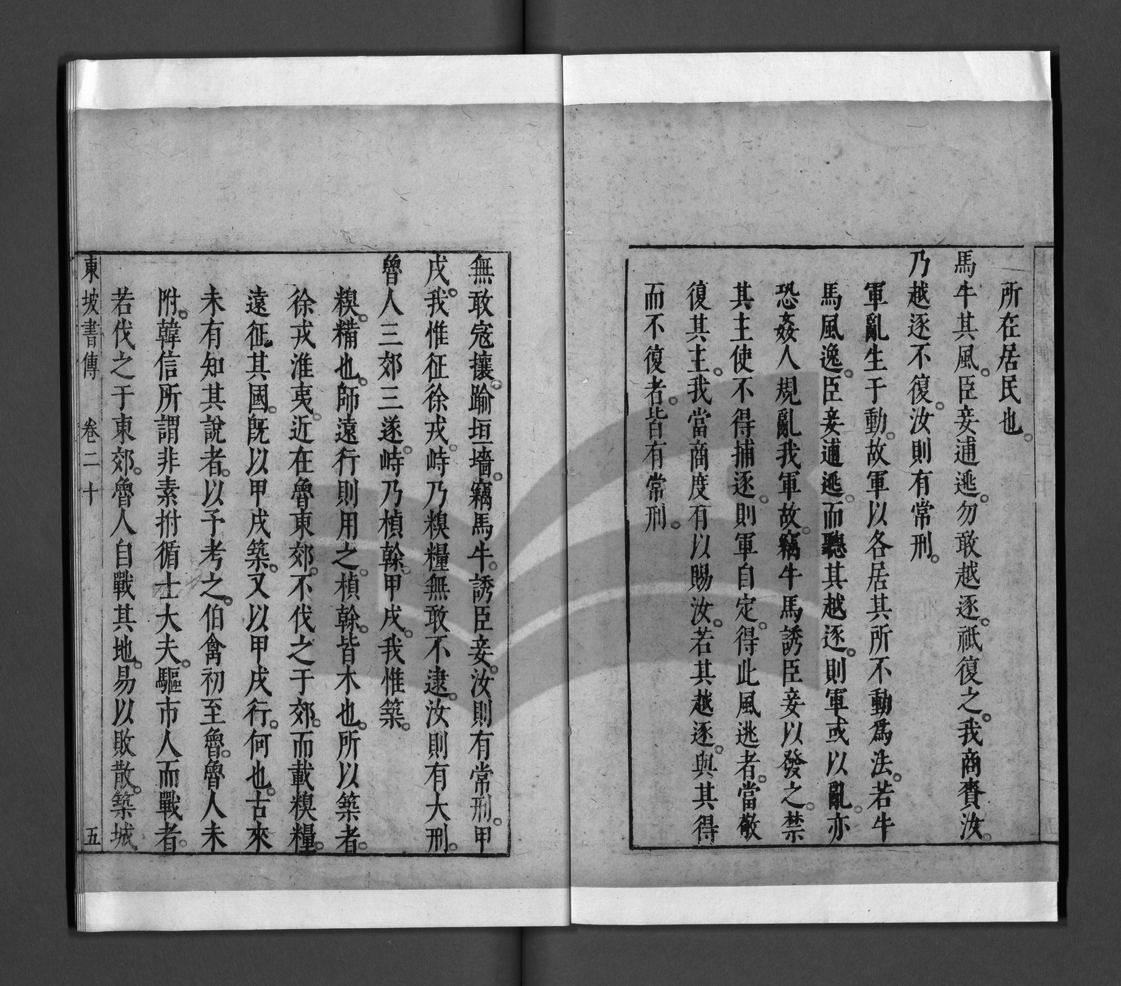 所在居民也。
馬牛其風。臣妾逋逃。勿敢越逐。祗復之。我商賚汝。
乃越逐不復。汝則有常刑。
軍亂生于動。故軍以各居其所不動爲法。若牛
馬風逸。臣妾逋逃。而聽其越逐。則軍或以亂。亦
恐姦人規亂我軍。故竊牛馬誘臣妾以發之。禁
其主使不得捕逐。則軍自定。得此風逃者。當敬
復其主。我當商度有以賜汝。若其越逐。與其得
而不復者。皆有常刑。
無敢寇攘。踰垣墻。竊馬牛。誘臣妾。汝則有常刑。甲
戌。我惟征徐戎。峙乃糗糧無敢不逮。汝則有大刑。
魯人三郊三遂。峙乃楨榦。甲戌。我惟築。
糗糒也。師遠行則用之。楨榦。皆木也。所以築者。
徐戎淮夷。近在魯東郊。不伐之于郊。而載糗糧。
遠征其國。旣以甲戌築。又以甲戌行。何也。古來
未有知其說者。以予考之。伯禽初至魯。魯人未
附。韓信所謂非素拊循士大夫。驅市人而戰者。
若伐之于東郊。魯人自戰其地。易以敗散。築城
東坡書傳 卷二十 五